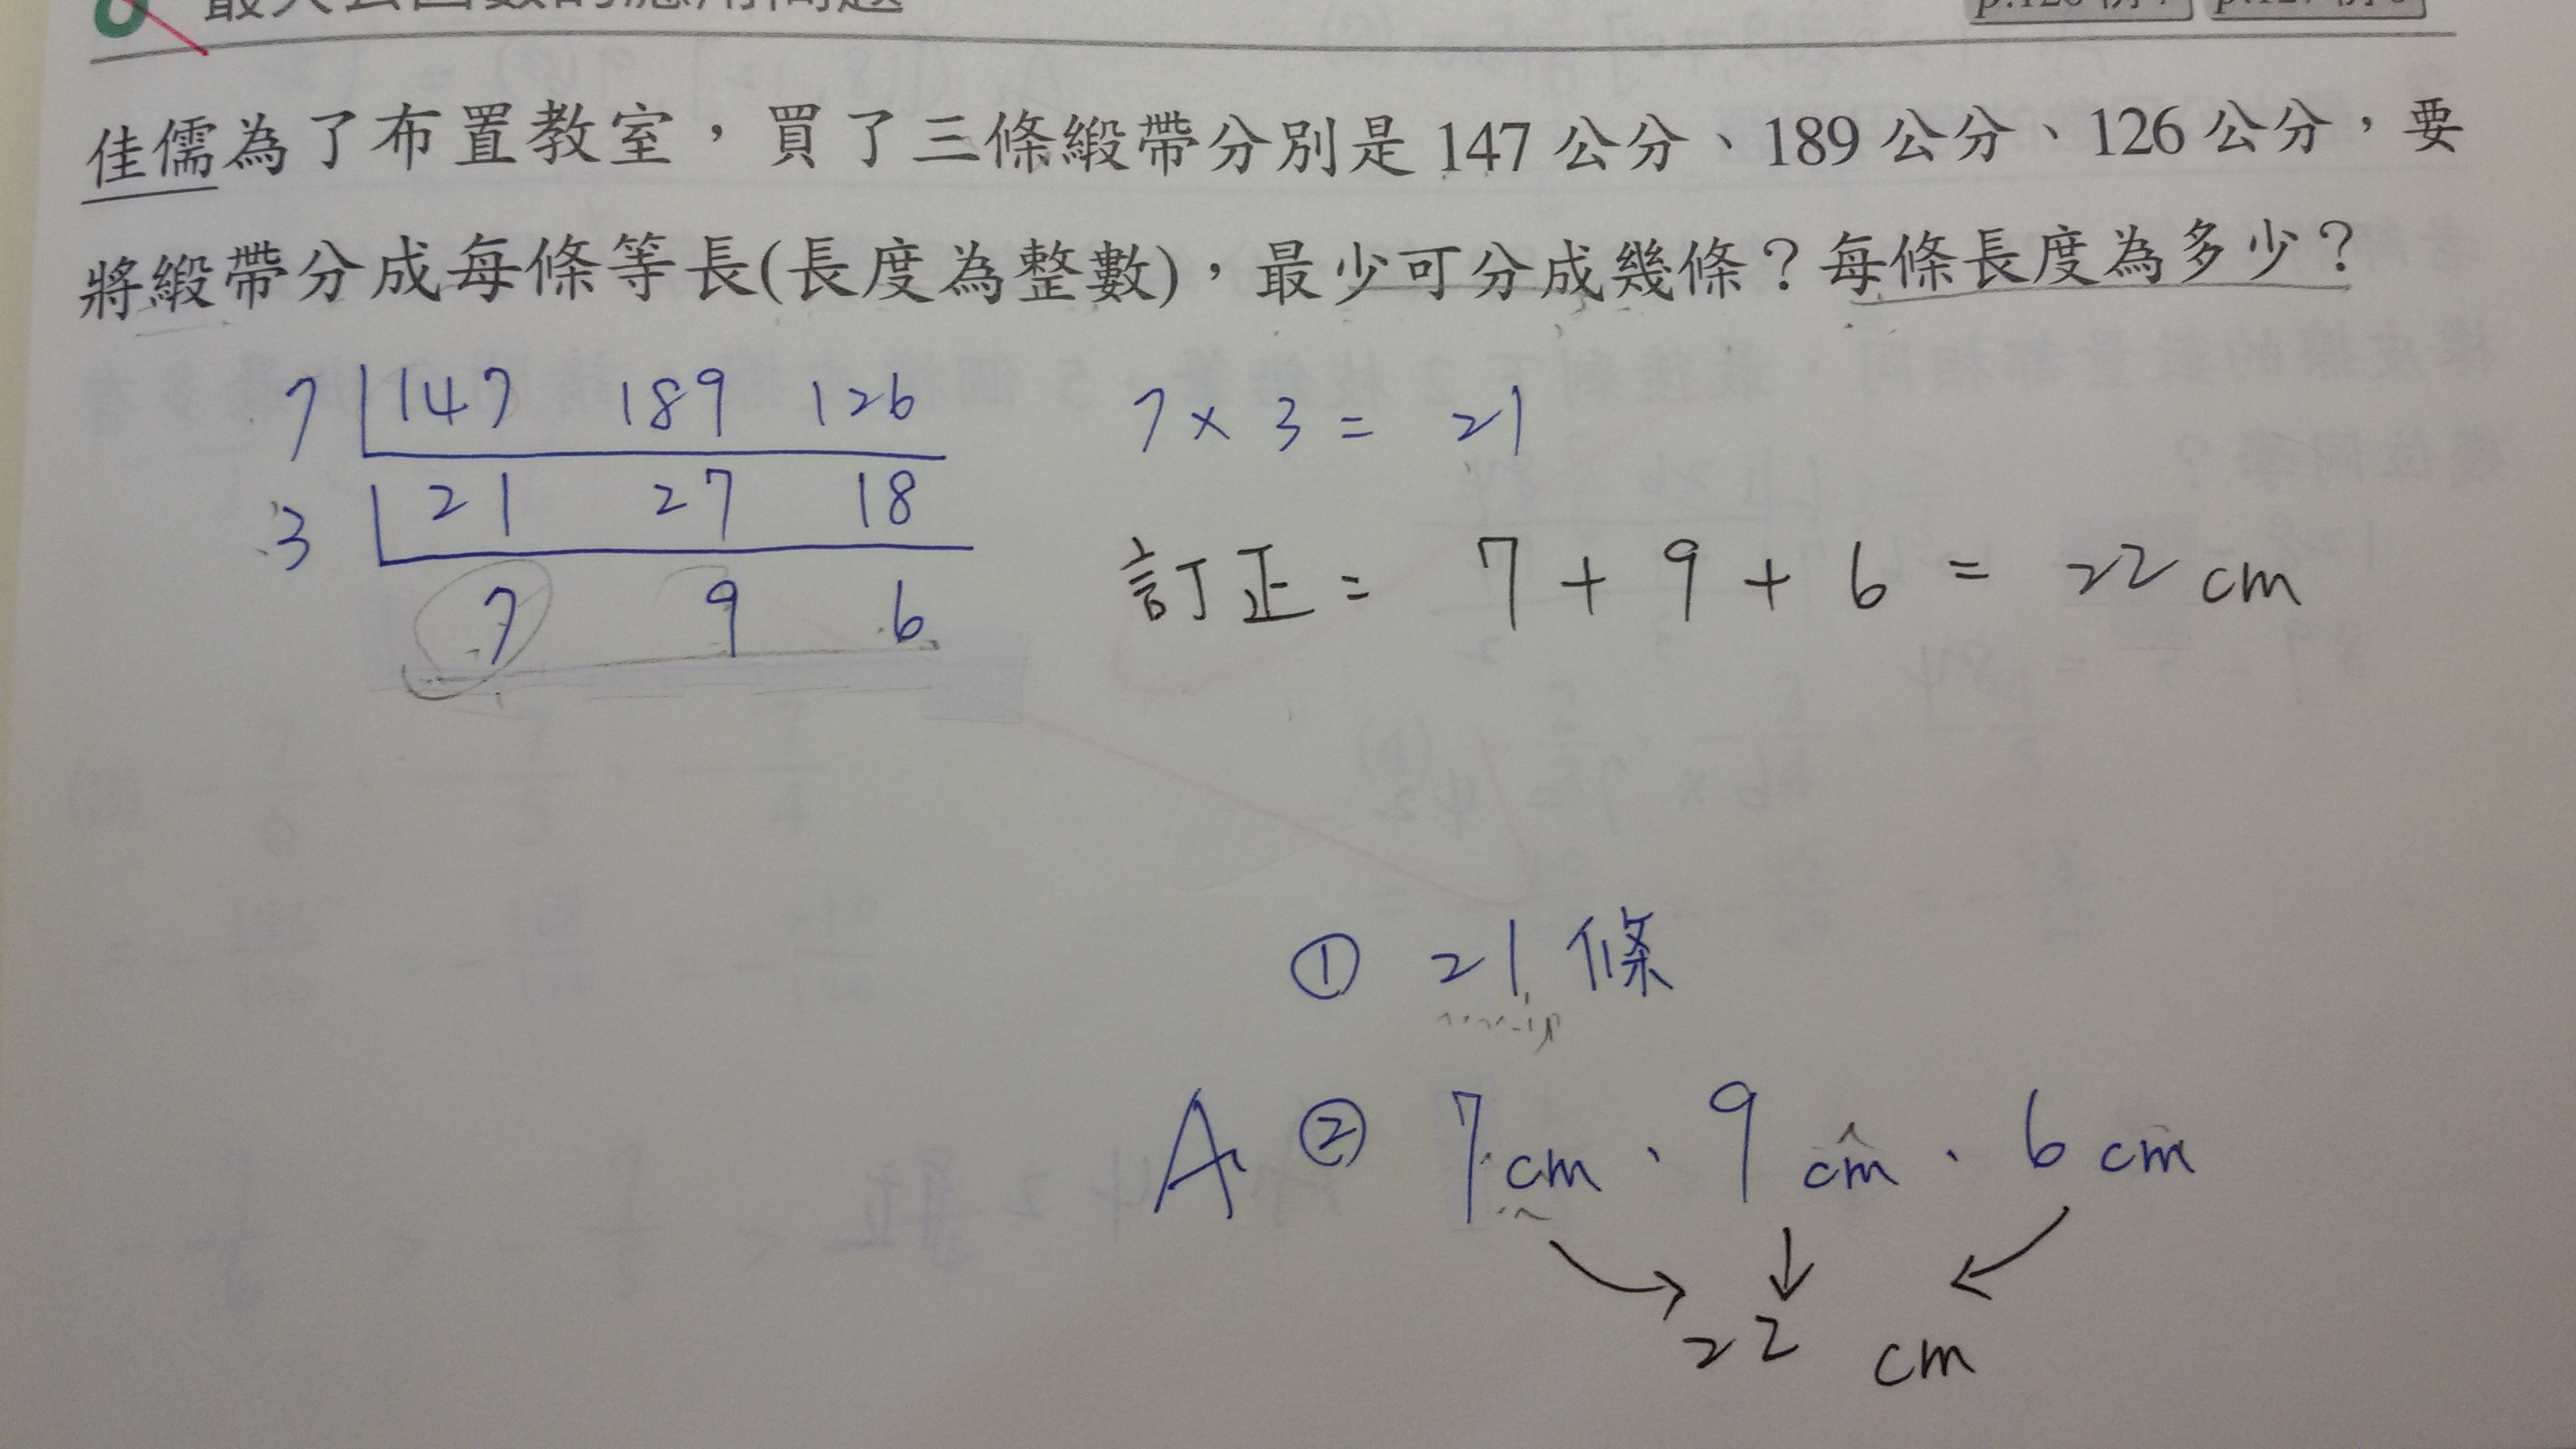 最大公因數的應用問題
佳儒為了布置教室，買了三條緞帶分別是147公分、189公分、126公分，要
將緞帶分成每條等長(長度為整數)，最少可分成幾條？每條長度為多少？
7 147 189 126
3 21 27 18
7 9 6
7 × 3 = 21
訂正 = 7 + 9 + 6 = 22 cm
① 21 條
A ② 7 cm、9 cm、6 cm
22 cm